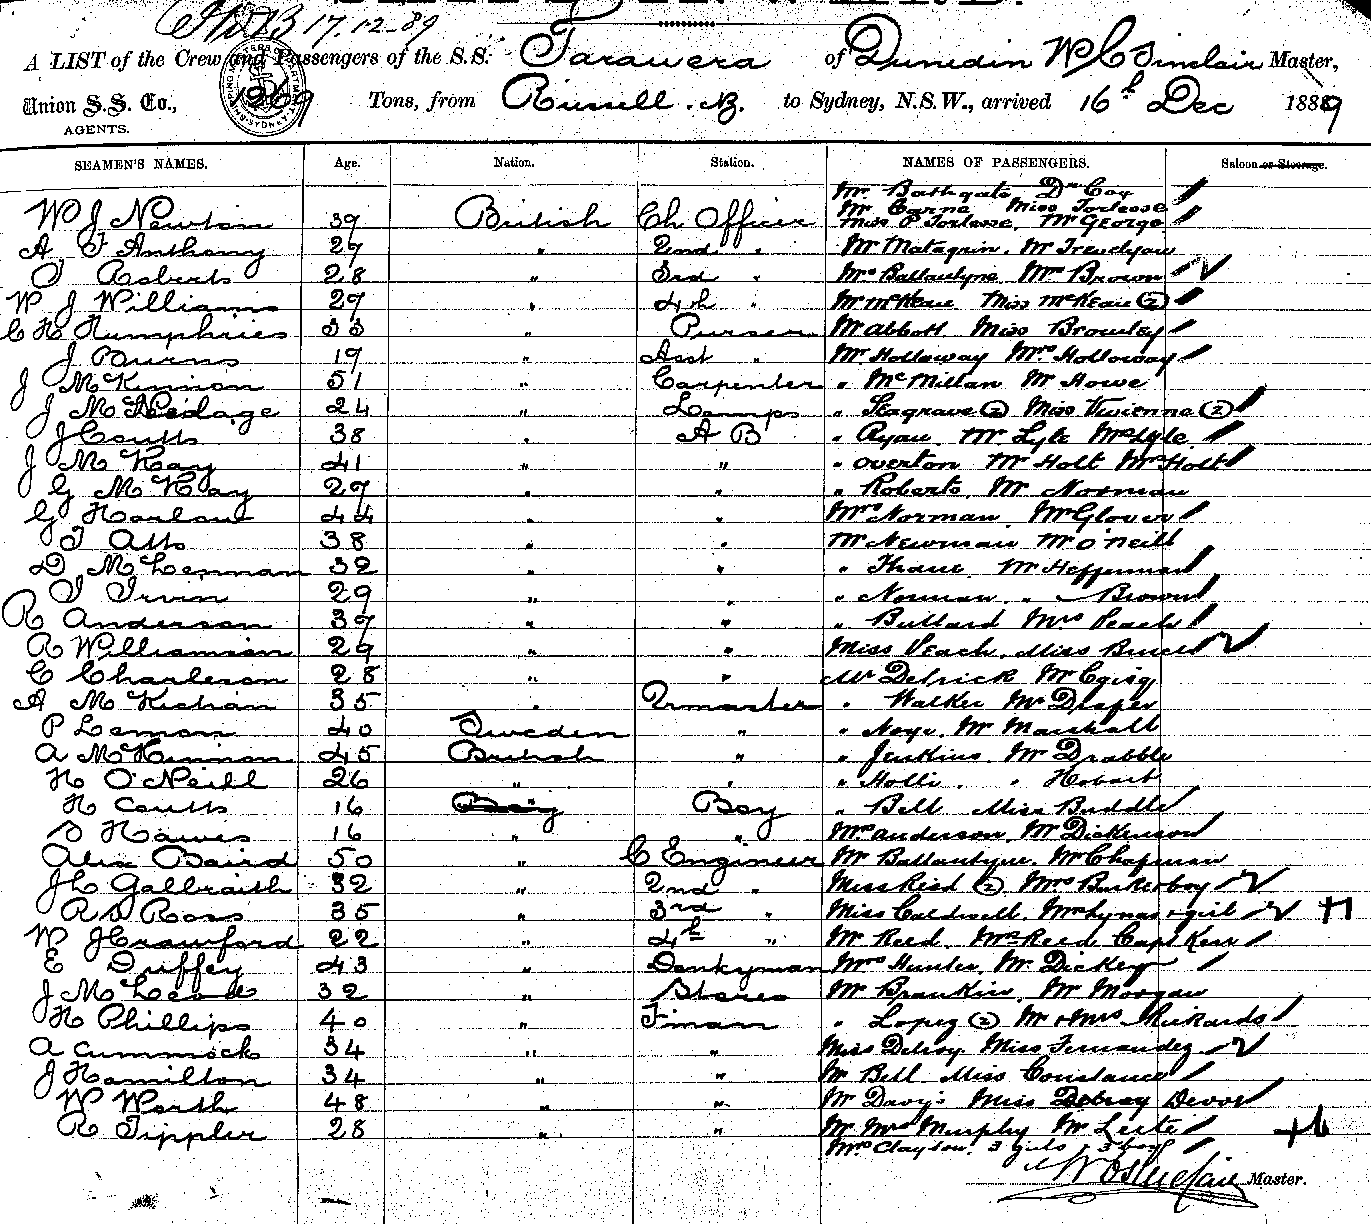 17.12.89
A LIST of the Crew and Passengers of the S.S. Tarawera of Dunedin W C Sinclair Master,
Union S.S. Co., 1269 Tons, from Russell. NZ. to Sydney, N.S.W., arrived 16th Dec 1889
AGENTS.
SEAMEN'S NAMES. Age. Nation. Station. NAMES OF PASSENGERS. Saloon or Steerage.
Mr Bathgate Dr Cox
W J Newton 39 British Ch Officer Mr Carne Miss Torlesse
Miss P Torlesse. Mr George
A F Anthony 27 " 2nd " Mr Matagrin. Mr
T Roberts 28 " 3rd " Mrs Ballantyne Mr Brown
W J Williams 29 " 4th " Mr McKeane Miss McKeane (2)
C H Humphries 33 " Purser Mr Abbott Miss Bromley
J Burns 19 " Asst " Mr Holloway Mrs Holloway
J McKinnon 51 " Carpenter " McMillan Mr Howe
J M 24 " Lamps " Seagrave (2) Miss Vivienne (2)
J Coutts 38 " A B " Ryan. Mr Lyle Mrs Lyle
J McKay 41 " " " Overton Mr Holt Mrs Holt
G McKay 29 " " " Roberts. Mr Norman
G Harlow 44 " " Mrs Norman Mr Glover
T Atts 38 " " Mr Newman Mr O'Neill
D McLennan 32 " " " Mr Heffernan
T Irvin 29 " " " Norman " Brown
R Anderson 37 " " " Bullard Mrs Peach
R Williamson 29 " " Miss Veach. Miss
C Charleson 28 " " Mr Detrick Mr
A McKichan 35 " Qrmaster " Walker Mr Draper
P Leman 40 Sweden " " Noye. Mr Marshall
A McKinnon 45 British " " Jenkins. Mr Drabble
H O'Neill 26 " " " Hollis. " Hobart
H Coutts 16 " Boy " Bell Miss Buddle
S Hawes 16 " " Mrs Anderson. Mr Dickenson
Alex Baird 50 " C Engineer Mr Ballantyne. Mr Chapman
J L Galbraith 32 " 2nd " Miss Reid (2). Mrs
R S Ross 35 " 3rd " Miss Caldwell. Mrs Lynas + girl +1
W J Crawford 22 " 4th " Mr Reed. Mrs Reed Capt Kerr
E Duffey 43 " Donkyman Mrs Hunter. Mr Dickey
J McLeod 32 " Stores Mr Brankin. Mr Morgan
H Phillips 40 " Fireman " Lopez (2) Mr + Mrs Rickards
A Cummock 34 " " Miss Delroy Miss Fernandez
J Hamilton 34 " " Mr Bell Miss Constance
W Werth 48 " " Mr Davys Miss Devoe
R Tippler 28 " " Mr Mrs Murphy Mr Leete +6
Mrs Clayton. 3 girls + 3 boys
W C Sinclair Master.